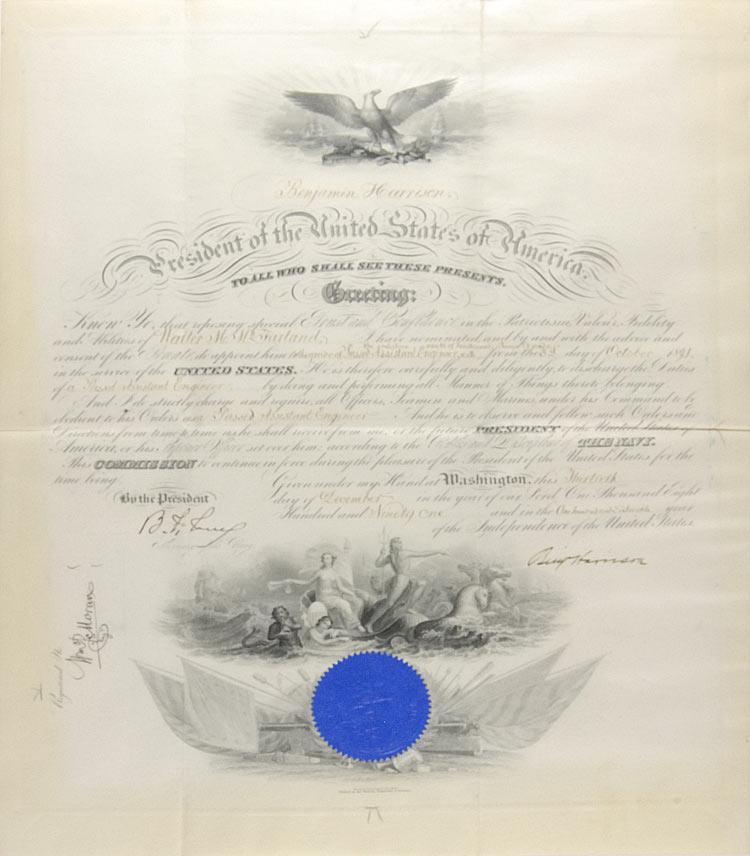 Benjamin Harrison,
President of the United States of America.
TO ALL WHO SHALL SEE THESE PRESENTS,
Greeting:
Know Ye, that reposing special Trust and Confidence in the Patriotism, Valour, Fidelity
and Abilities of Walter M. McFarland I have nominated and by and with the advice and
consent of the Senate do appoint him a Passed Assistant Engineer from the 3d day of October 1891
in the service of the UNITED STATES. He is therefore carefully and diligently to discharge the Duties
of a Passed Assistant Engineer by doing and performing all Manner of Things thereto belonging.
And I do strictly charge and require all Officers, Seamen and Marines under his Command to be
obedient to his Orders as a Passed Assistant Engineer And he is to observe and follow such Orders and
Directions from time to time as he shall receive from me, or the future PRESIDENT of the United States of
America, or his Superior Officer set over him, according to the Rules and Discipline of THE NAVY.
This COMMISSION to continue in force during the pleasure of the President of the United States for the
time being.
Given under my Hand at Washington, this Thirtieth
By the President
day of December in the year of our Lord One Thousand Eight
Hundred and Ninety One and in the One Hundred and Sixteenth year
of the Independence of the United States.
B. F. Tracy
Secretary of the Navy
Benj Harrison
Registered
Moran